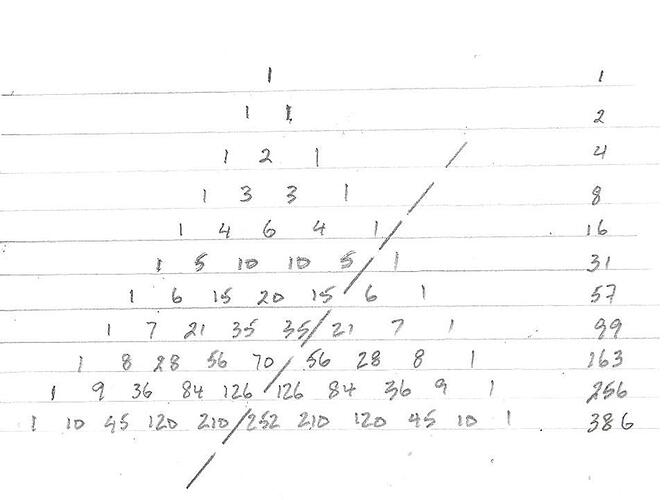 1 1
1 1 2
1 2 1 4
1 3 3 1 8
1 4 6 4 1 16
1 5 10 10 5 1 31
1 6 15 20 15 6 1 57
1 7 21 35 35 21 7 1 99
1 8 28 56 70 56 28 8 1 163
1 9 36 84 126 126 84 36 9 1 256
1 10 45 120 210 252 210 120 45 10 1 386